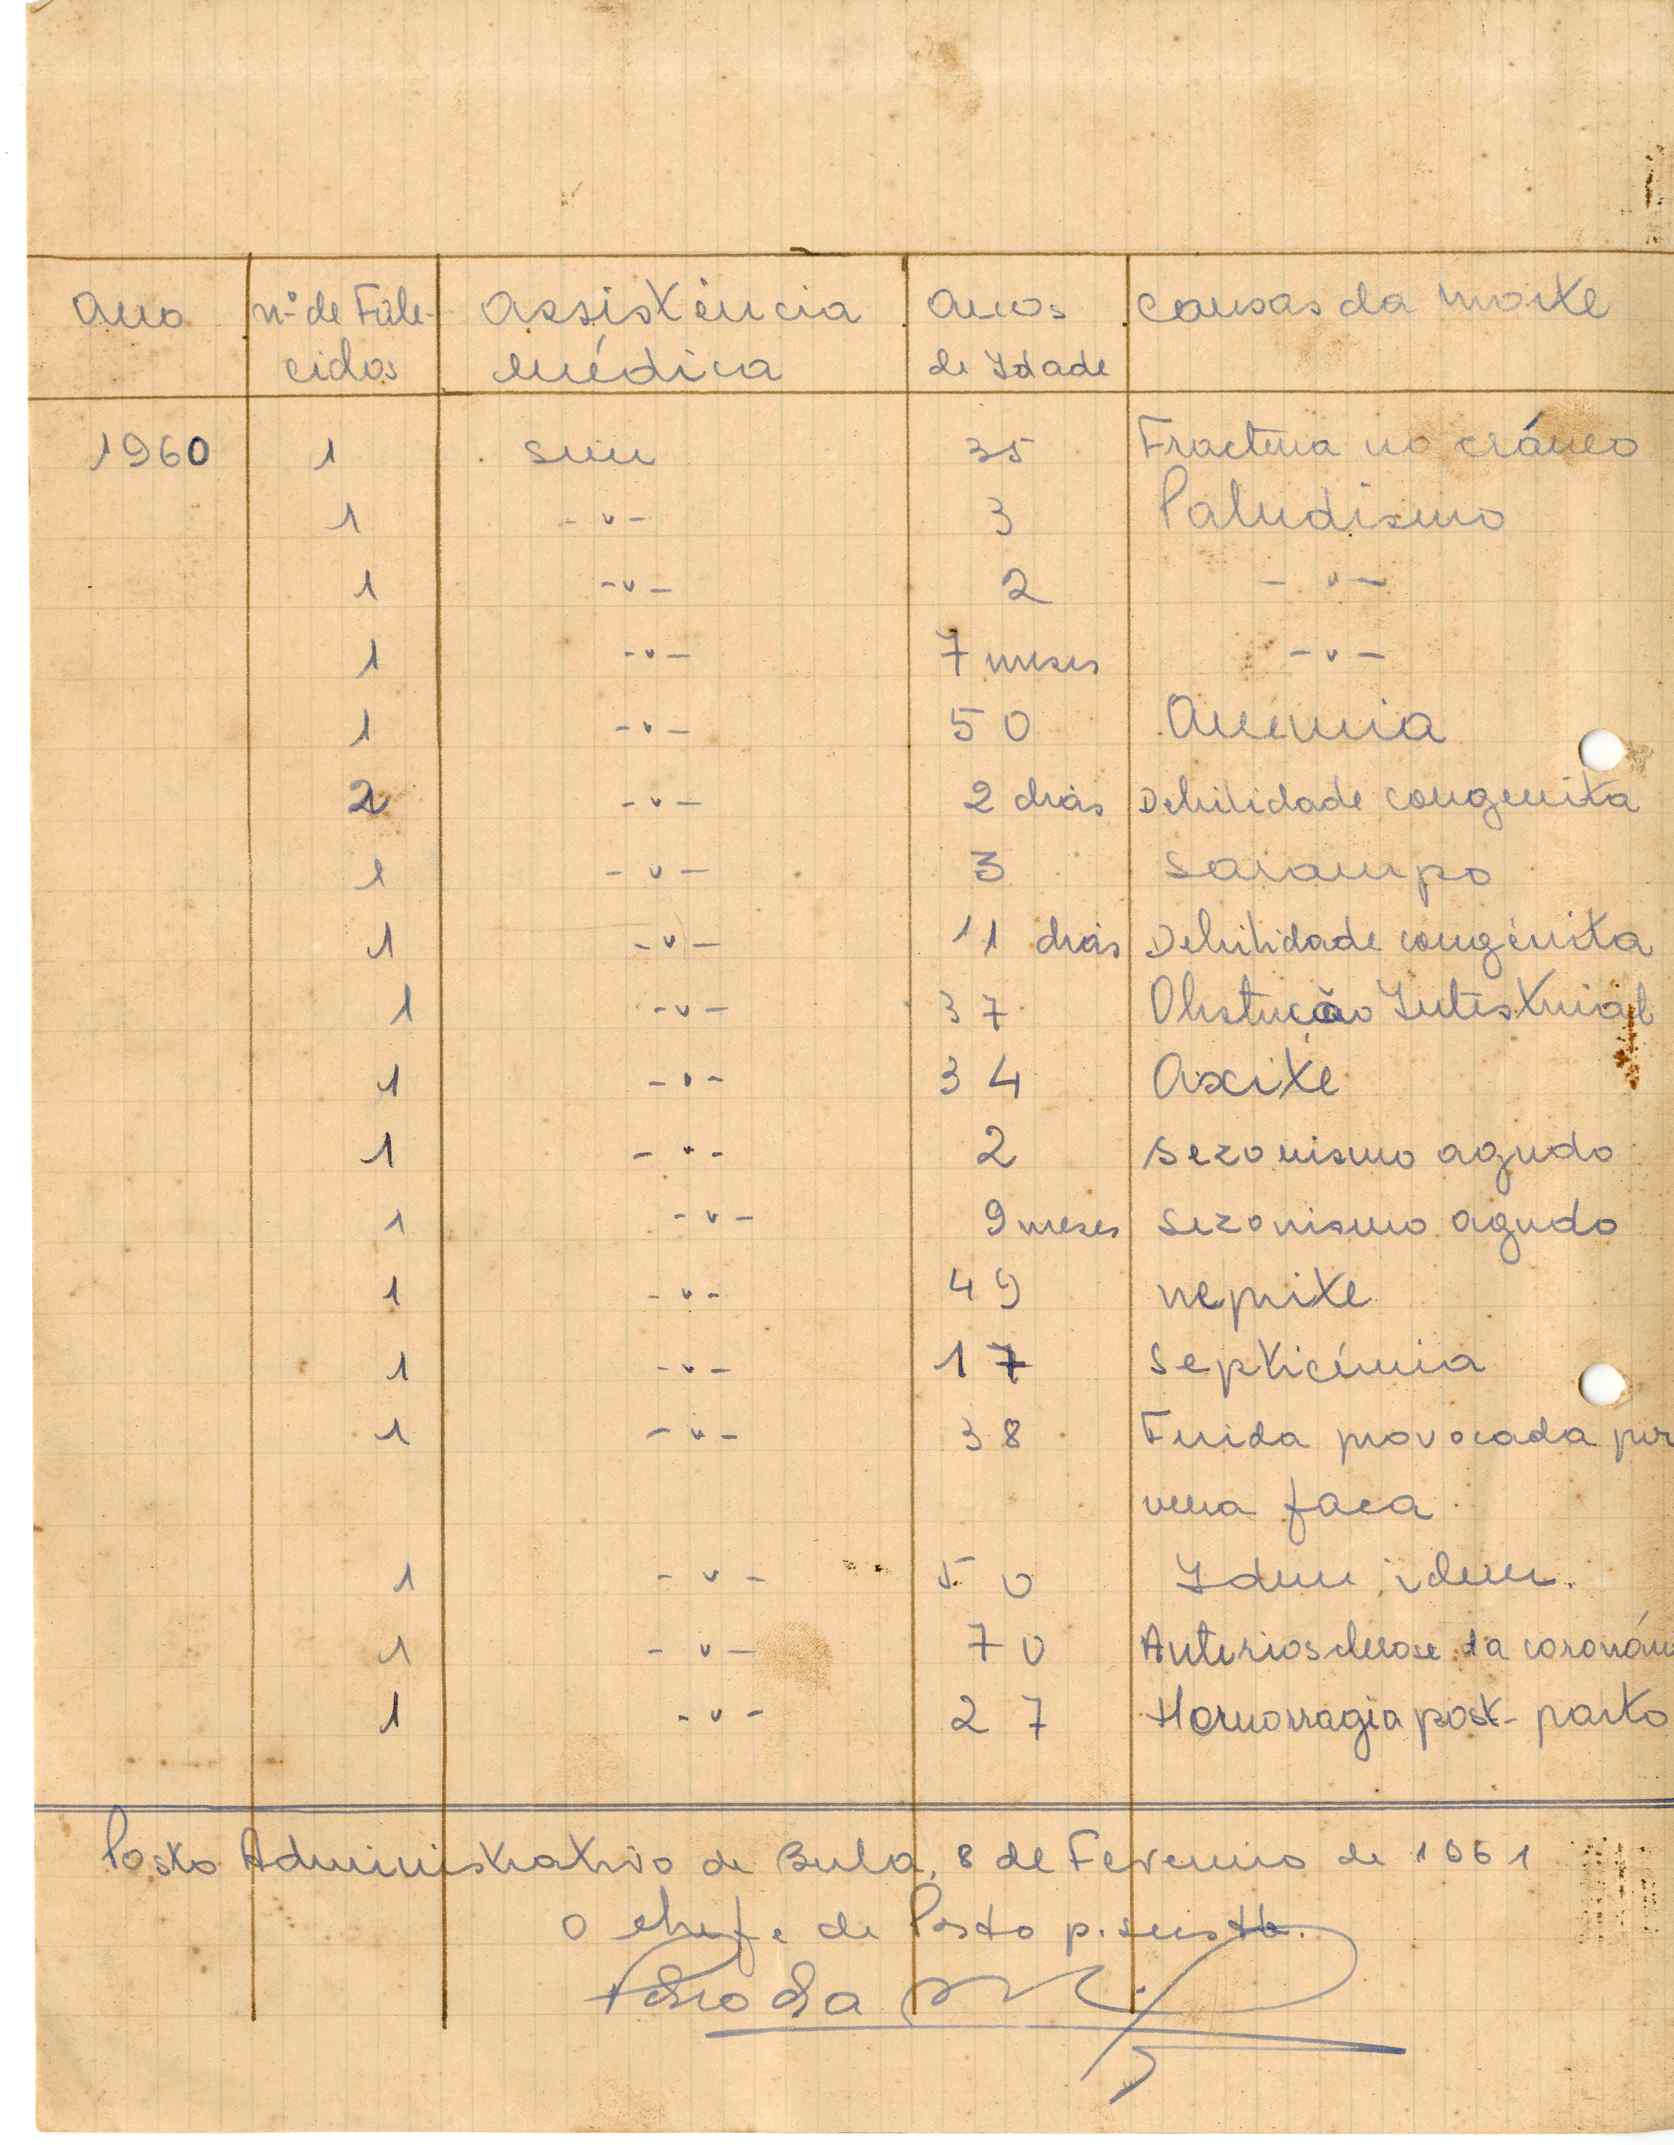 Ano nº de Fale- Assistência Anos Causas da morte
cidos médica de Idade
1960 1 sim 35 Fractura no cráneo
1 -"- 3 Paludismo
1 -"- 2 -"-
1 -"- 7 meses -"-
1 -"- 50 Anemia
2 -"- 2 dias Debilidade congenita
1 -"- 3 Sarampo
1 -"- 11 dias Debilidade congénita
1 -"- 37 Obstução Intestinial
1 -"- 34 Axite
1 -"- 2 Sezonismo agudo
1 -"- 9 meses Sezonismo agudo
1 -"- 49 neprite
1 -"- 17 Septicémia
1 -"- 38 Ferida provocada por
uma faca
1 -"- 50 Idem, idem.
1 -"- 70 Anteriosclerose da coronári
1 -"- 27 Hemorragia post-parto
Posto Administrativo de Bula, 8 de Fevereiro de 1961
O chefe de Posto p. sustb.
Pedro da